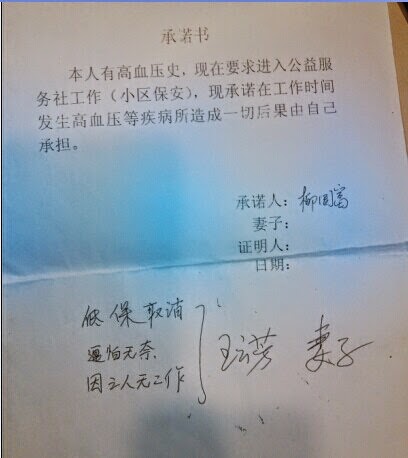 承若书
本人有高血压史，现在要求进入公益服
务社工作（小区保安），现承诺在工作时间
发生高血压等疾病所造成一切后果由自己
承担。
承若人：柳国富
妻子：
证明人：
日期：
低保取消
逼怕无奈
因主人无工作
王云芳 妻子